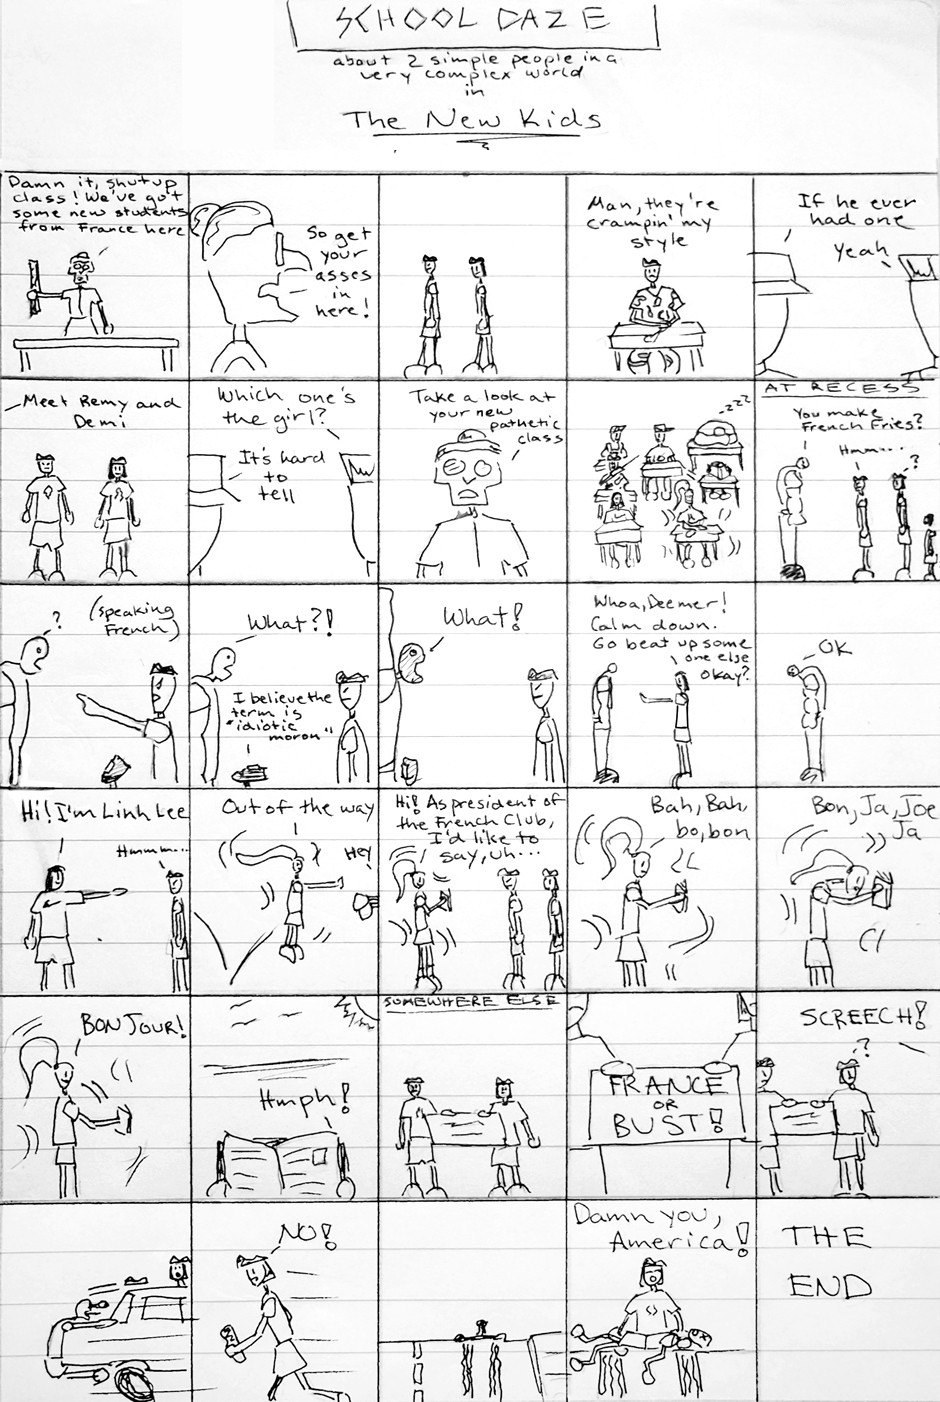 SCHOOL DAZE
about 2 simple people in a
very complex world
in
The New Kids
Damn it, shut up
class! We've got
some new students
from France here
So get
your
asses
in
here!
Man, they're
crampin' my
style
If he ever
had one
Yeah
Meet Remy and
Demi
Which one's
the girl?
It's hard
to
tell
Take a look at
your new
pathetic
class
zzz
AT RECESS
You make
French Fries?
Hmm...
?
?
(speaking
French)
What?!
I believe the
term is
"idiotic
moron"
What!
Whoa, Deemer!
Calm down.
Go beat up some
one else
okay?
OK
Hi! I'm Linh Lee
Hmmm...
Out of the way
Hey
Hi! As president of
the French Club,
I'd like to
say, uh...
Bah, Bah,
bo, bon
Bon, Ja, Joe
Ja
BONJOUR!
Hmph!
SOMEWHERE ELSE
FRANCE
OR
BUST!
SCREECH!
?
NO!
Damn you,
America!
THE
END